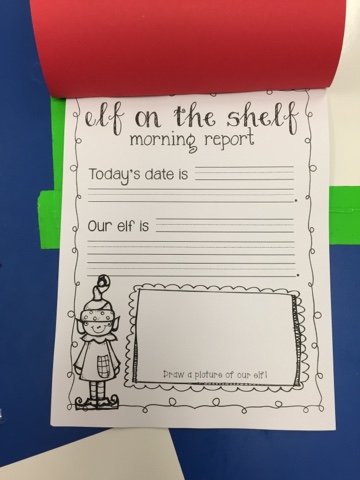 elf on the shelf
morning report
Today's date is
.
Our elf is
.
Draw a picture of our elf!